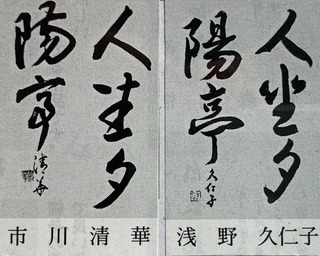 人坐夕
陽亭
久仁子
浅野久仁子
人坐夕
陽亭
清華
市川清華